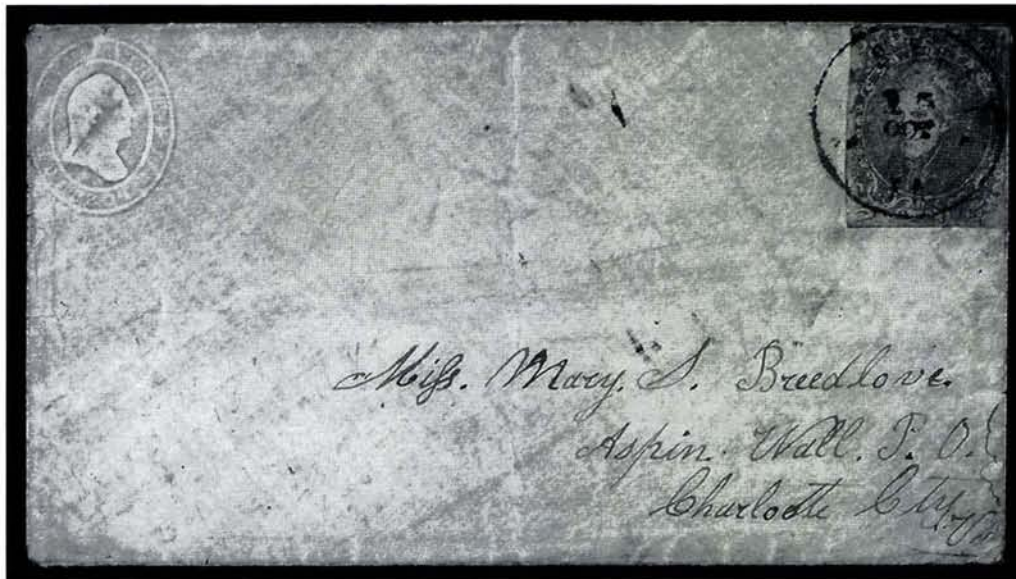 Miss. Mary. S. Breedlove.
Aspin. Wall. P. O.
Charlotte Cty, Va